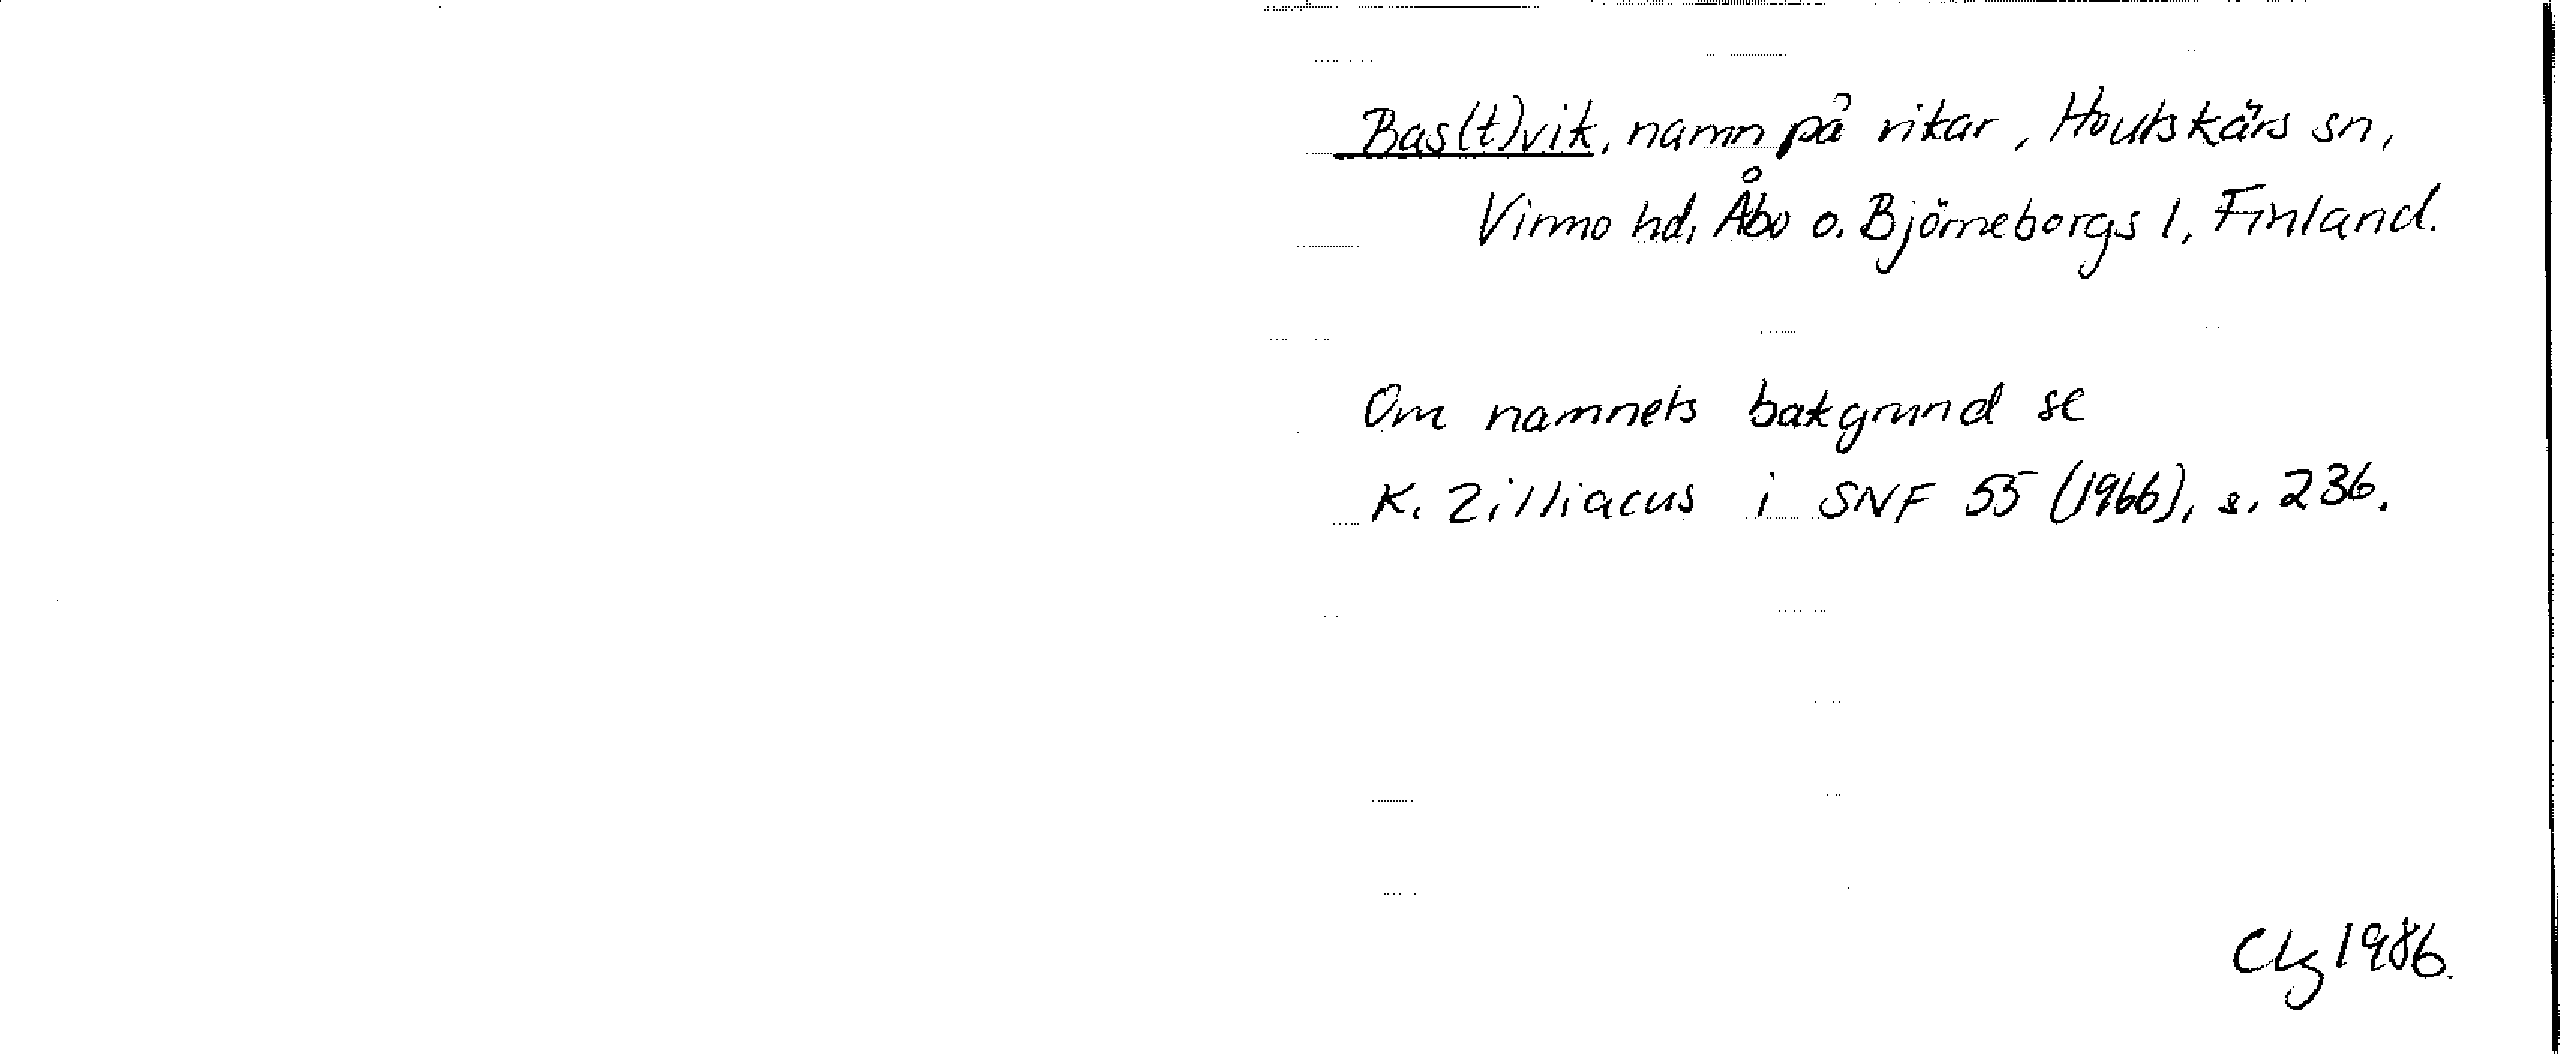 Bas(t)vik, namn på vikar, Houtskärs sn,
Virmo hd, Åbo o. Björneborgs l, Finland.
Om namnets bakgrund se
K. Zilliacus i SNF 55 (1966), s. 236.
1986.